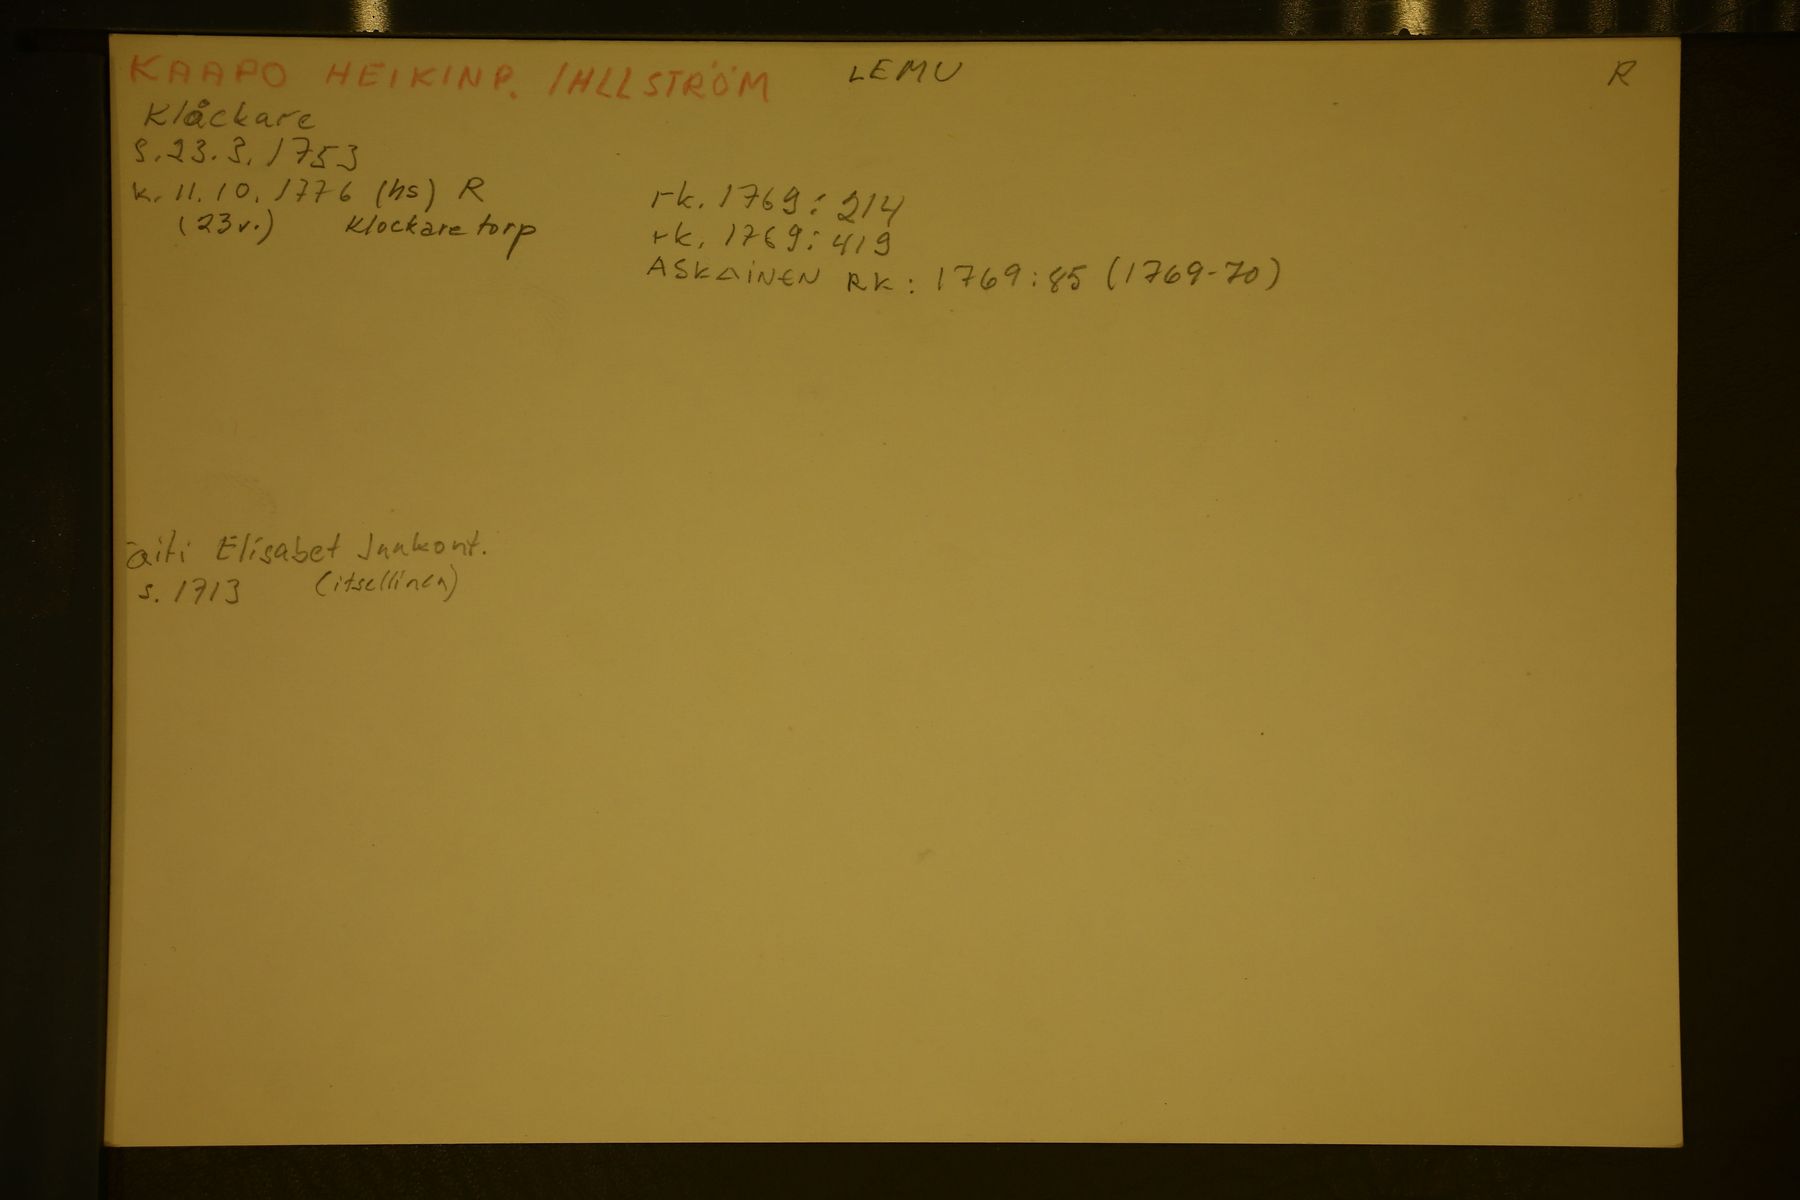 KAAPO HEIKINP. /HLLSTRÖM LEMU R
Klåckare
S. 23.3.1753
k. 11.10.1776 (hs) R rk. 1769:214
(23v.) Klockare torp rk. 1769:419
ASKAINEN RK: 1769:85 (1769-70)
äiti Elisabet Jaakont.
s. 1713 (itsellinen)